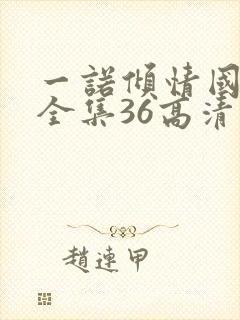 一諾傾情國
全集36高清
趙連甲